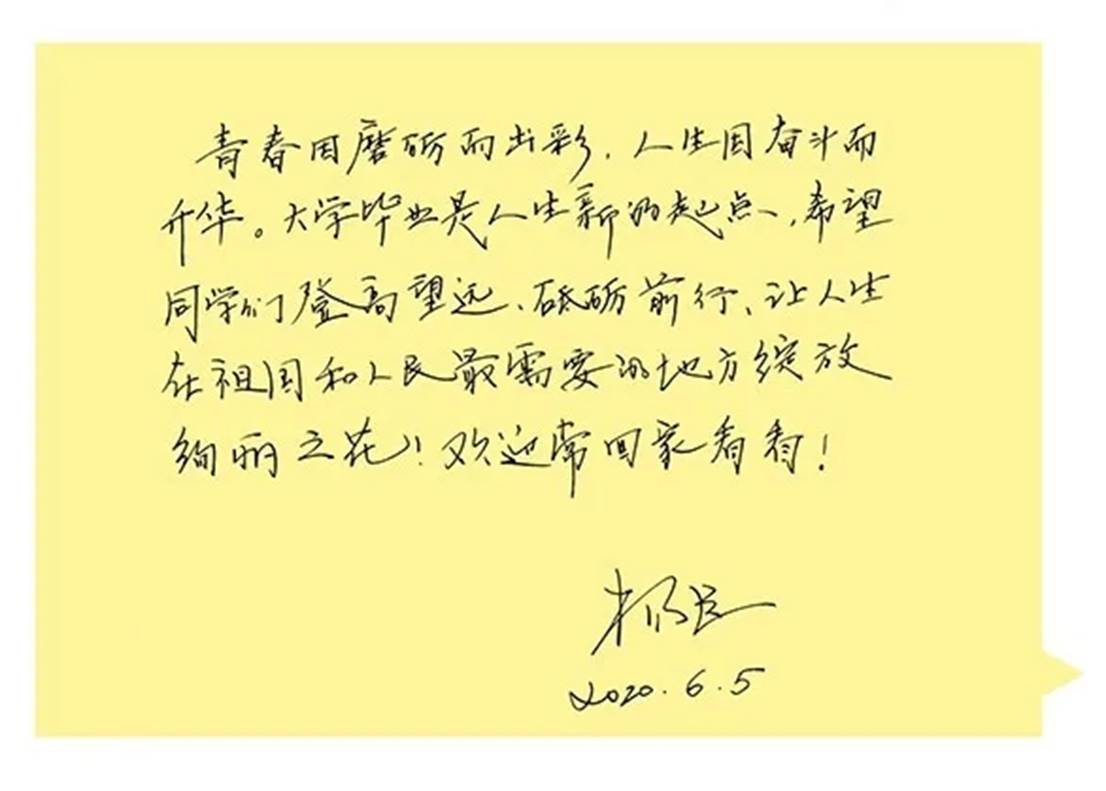 青春因磨砺而出彩，人生因奋斗而
升华。大学毕业是人生新的起点，希望
同学们登高望远、砥砺前行、让人生
在祖国和人民最需要的地方绽放
绚丽之花！欢迎常回家看看！
2020.6.5